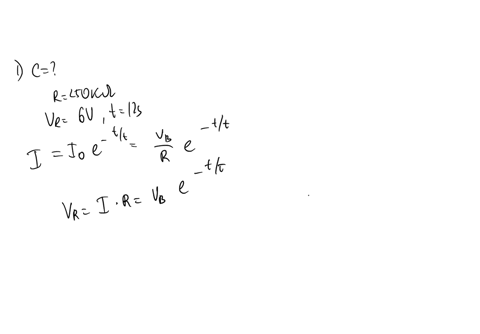 1) C=?
R=250KΩ
VR= 6V , t=12s
I = I0 e^-t/t = VB/R e^-t/t
VR= I · R= VB e^-t/τ